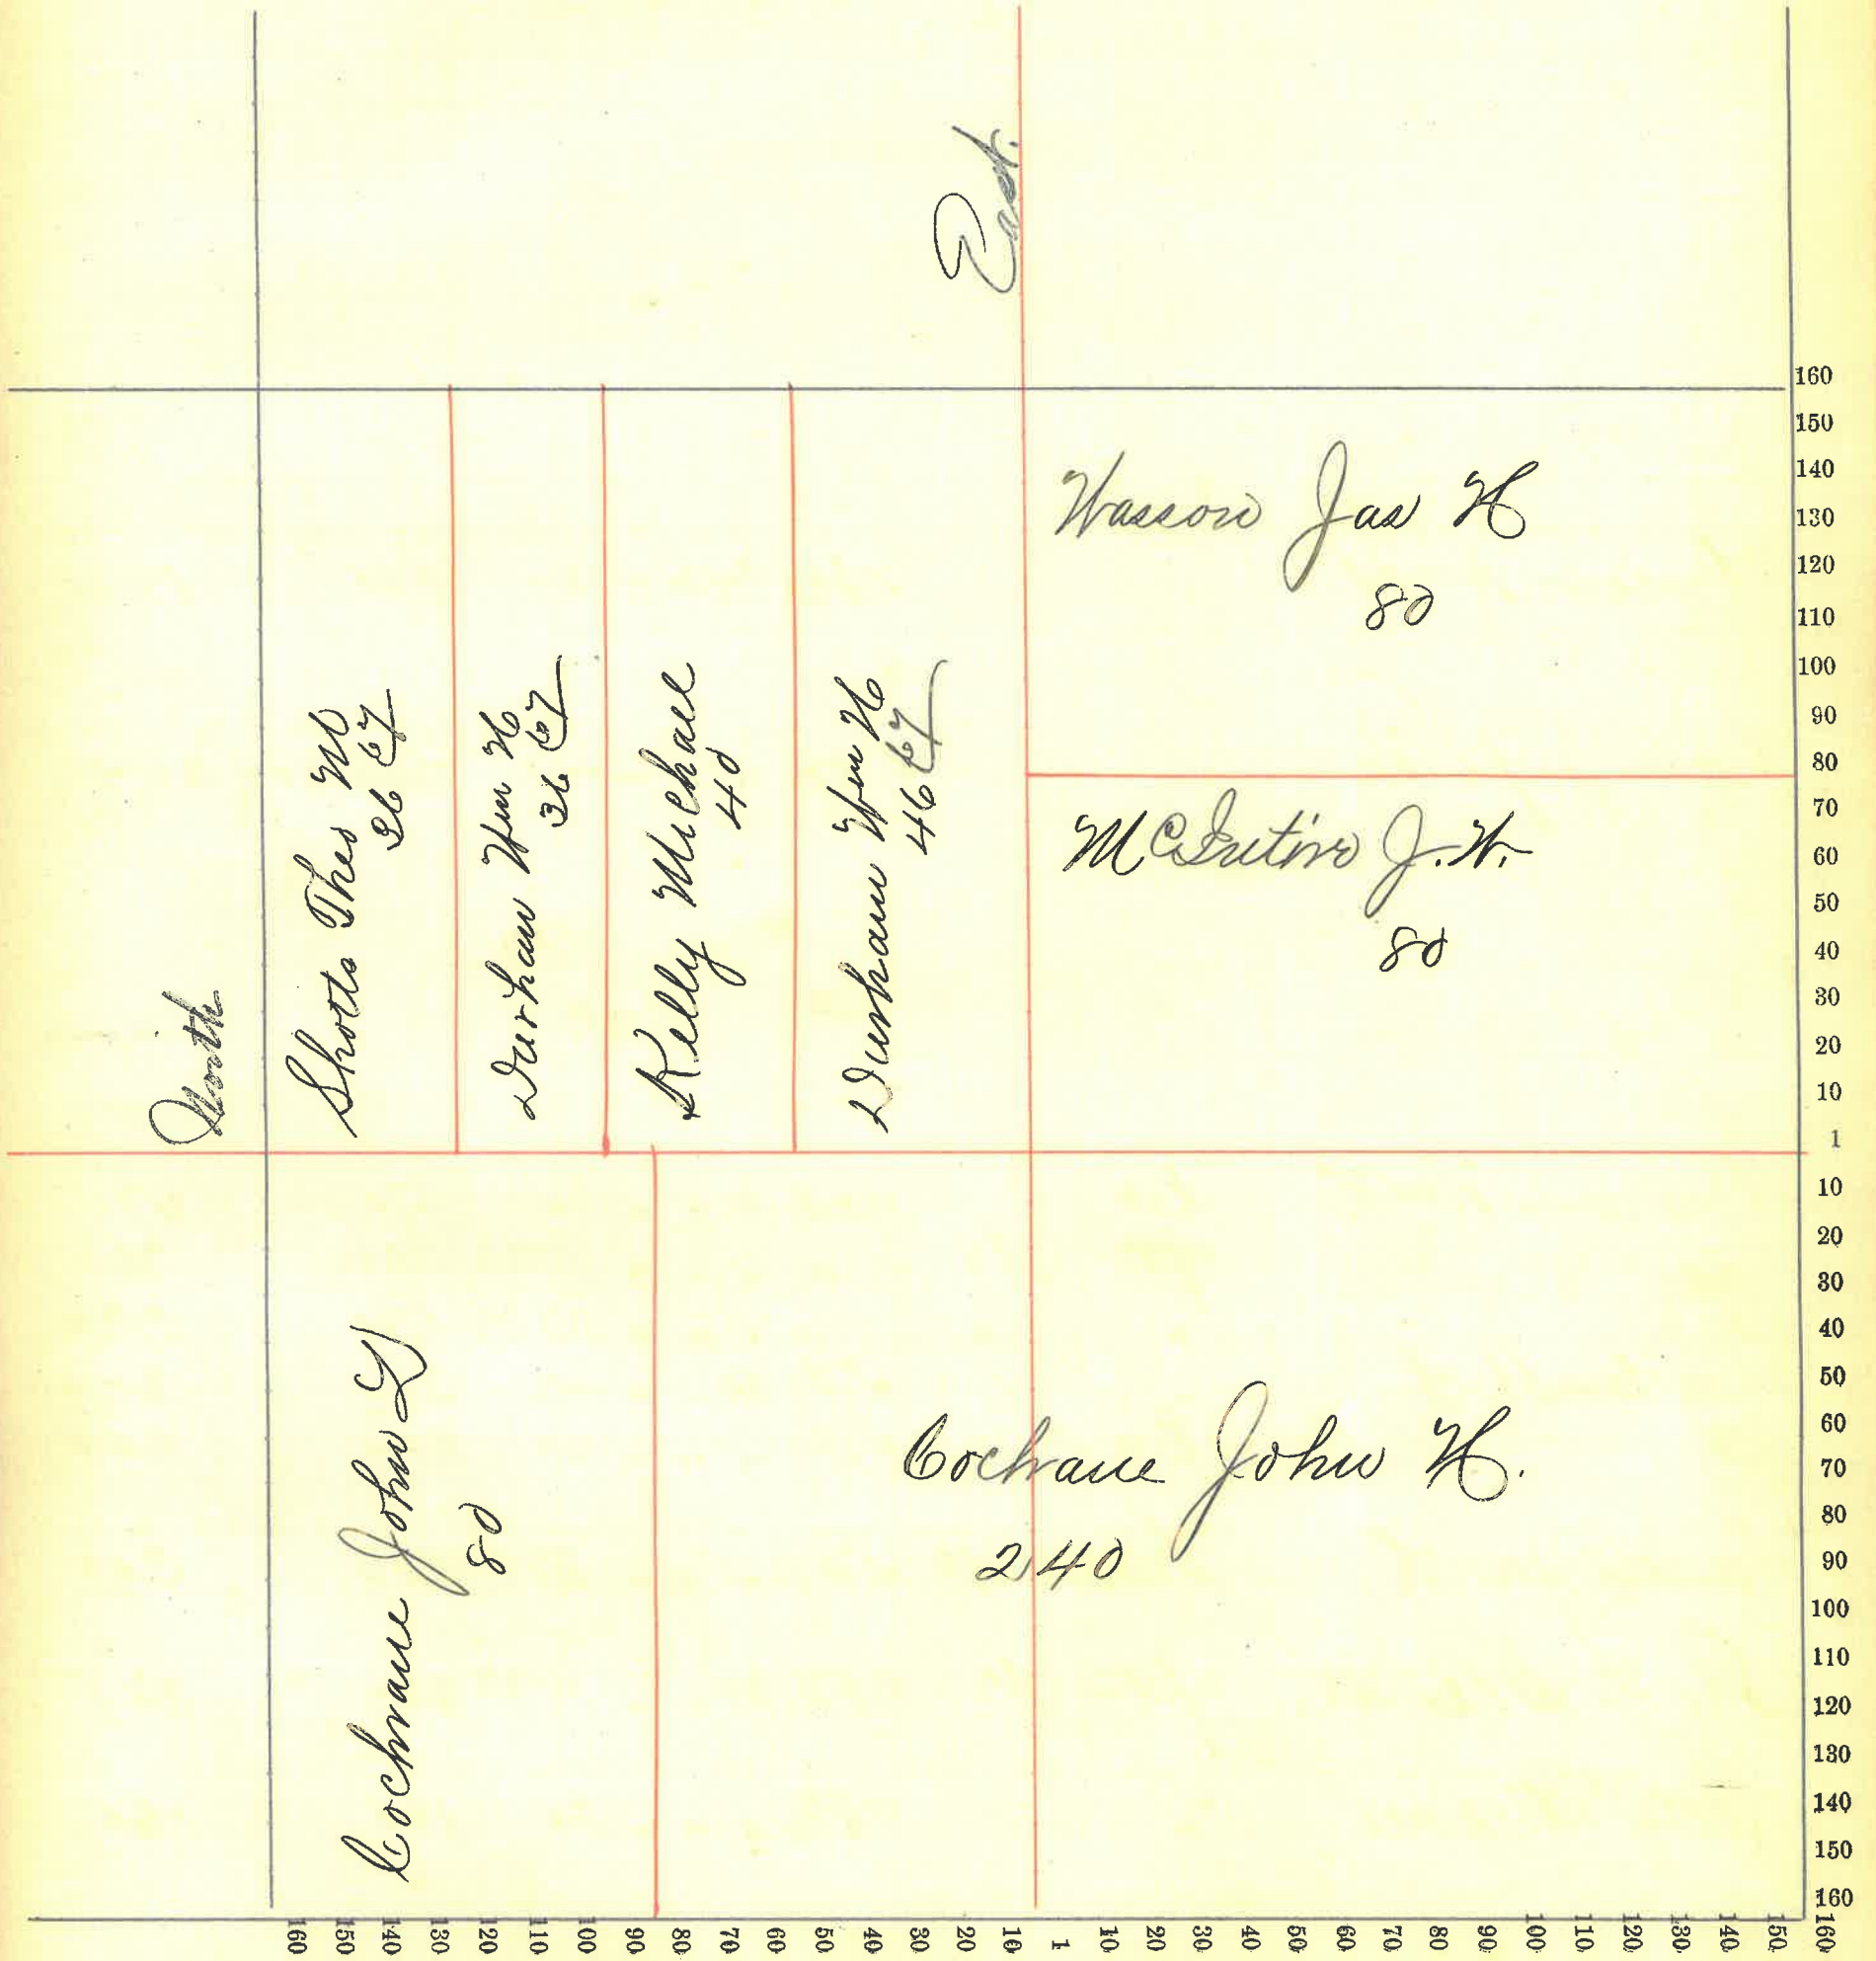 East.
North
Shotts Thos M
36 67
Durham Wm H
36 67
Kelly Michael
40
Durham Wm H
46 67
Wasson Jas H
80
McIntire J. W.
80
Cochrane John L
80
Cochrane John H.
240
160
150
140
130
120
110
100
90
80
70
60
50
40
30
20
10
1
10
20
30
40
50
60
70
80
90
100
110
120
130
140
150
160
160 150 140 130 120 110 100 90 80 70 60 50 40 30 20 10 1 10 20 30 40 50 60 70 80 90 100 110 120 130 140 150 160